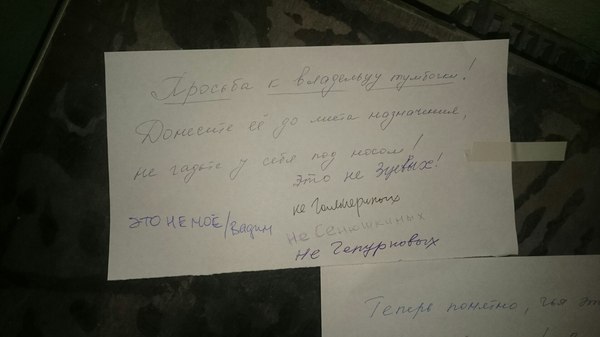 Просьба к владельцу тумбочки!
Донесите её до места назначения,
не гадьте у себя под носом!
Это не Зуевых!
не Гальпериных
ЭТО НЕ МОЁ/Вадим
не Сенюшкиных
не Чепурновых
Теперь понятно, чья эт